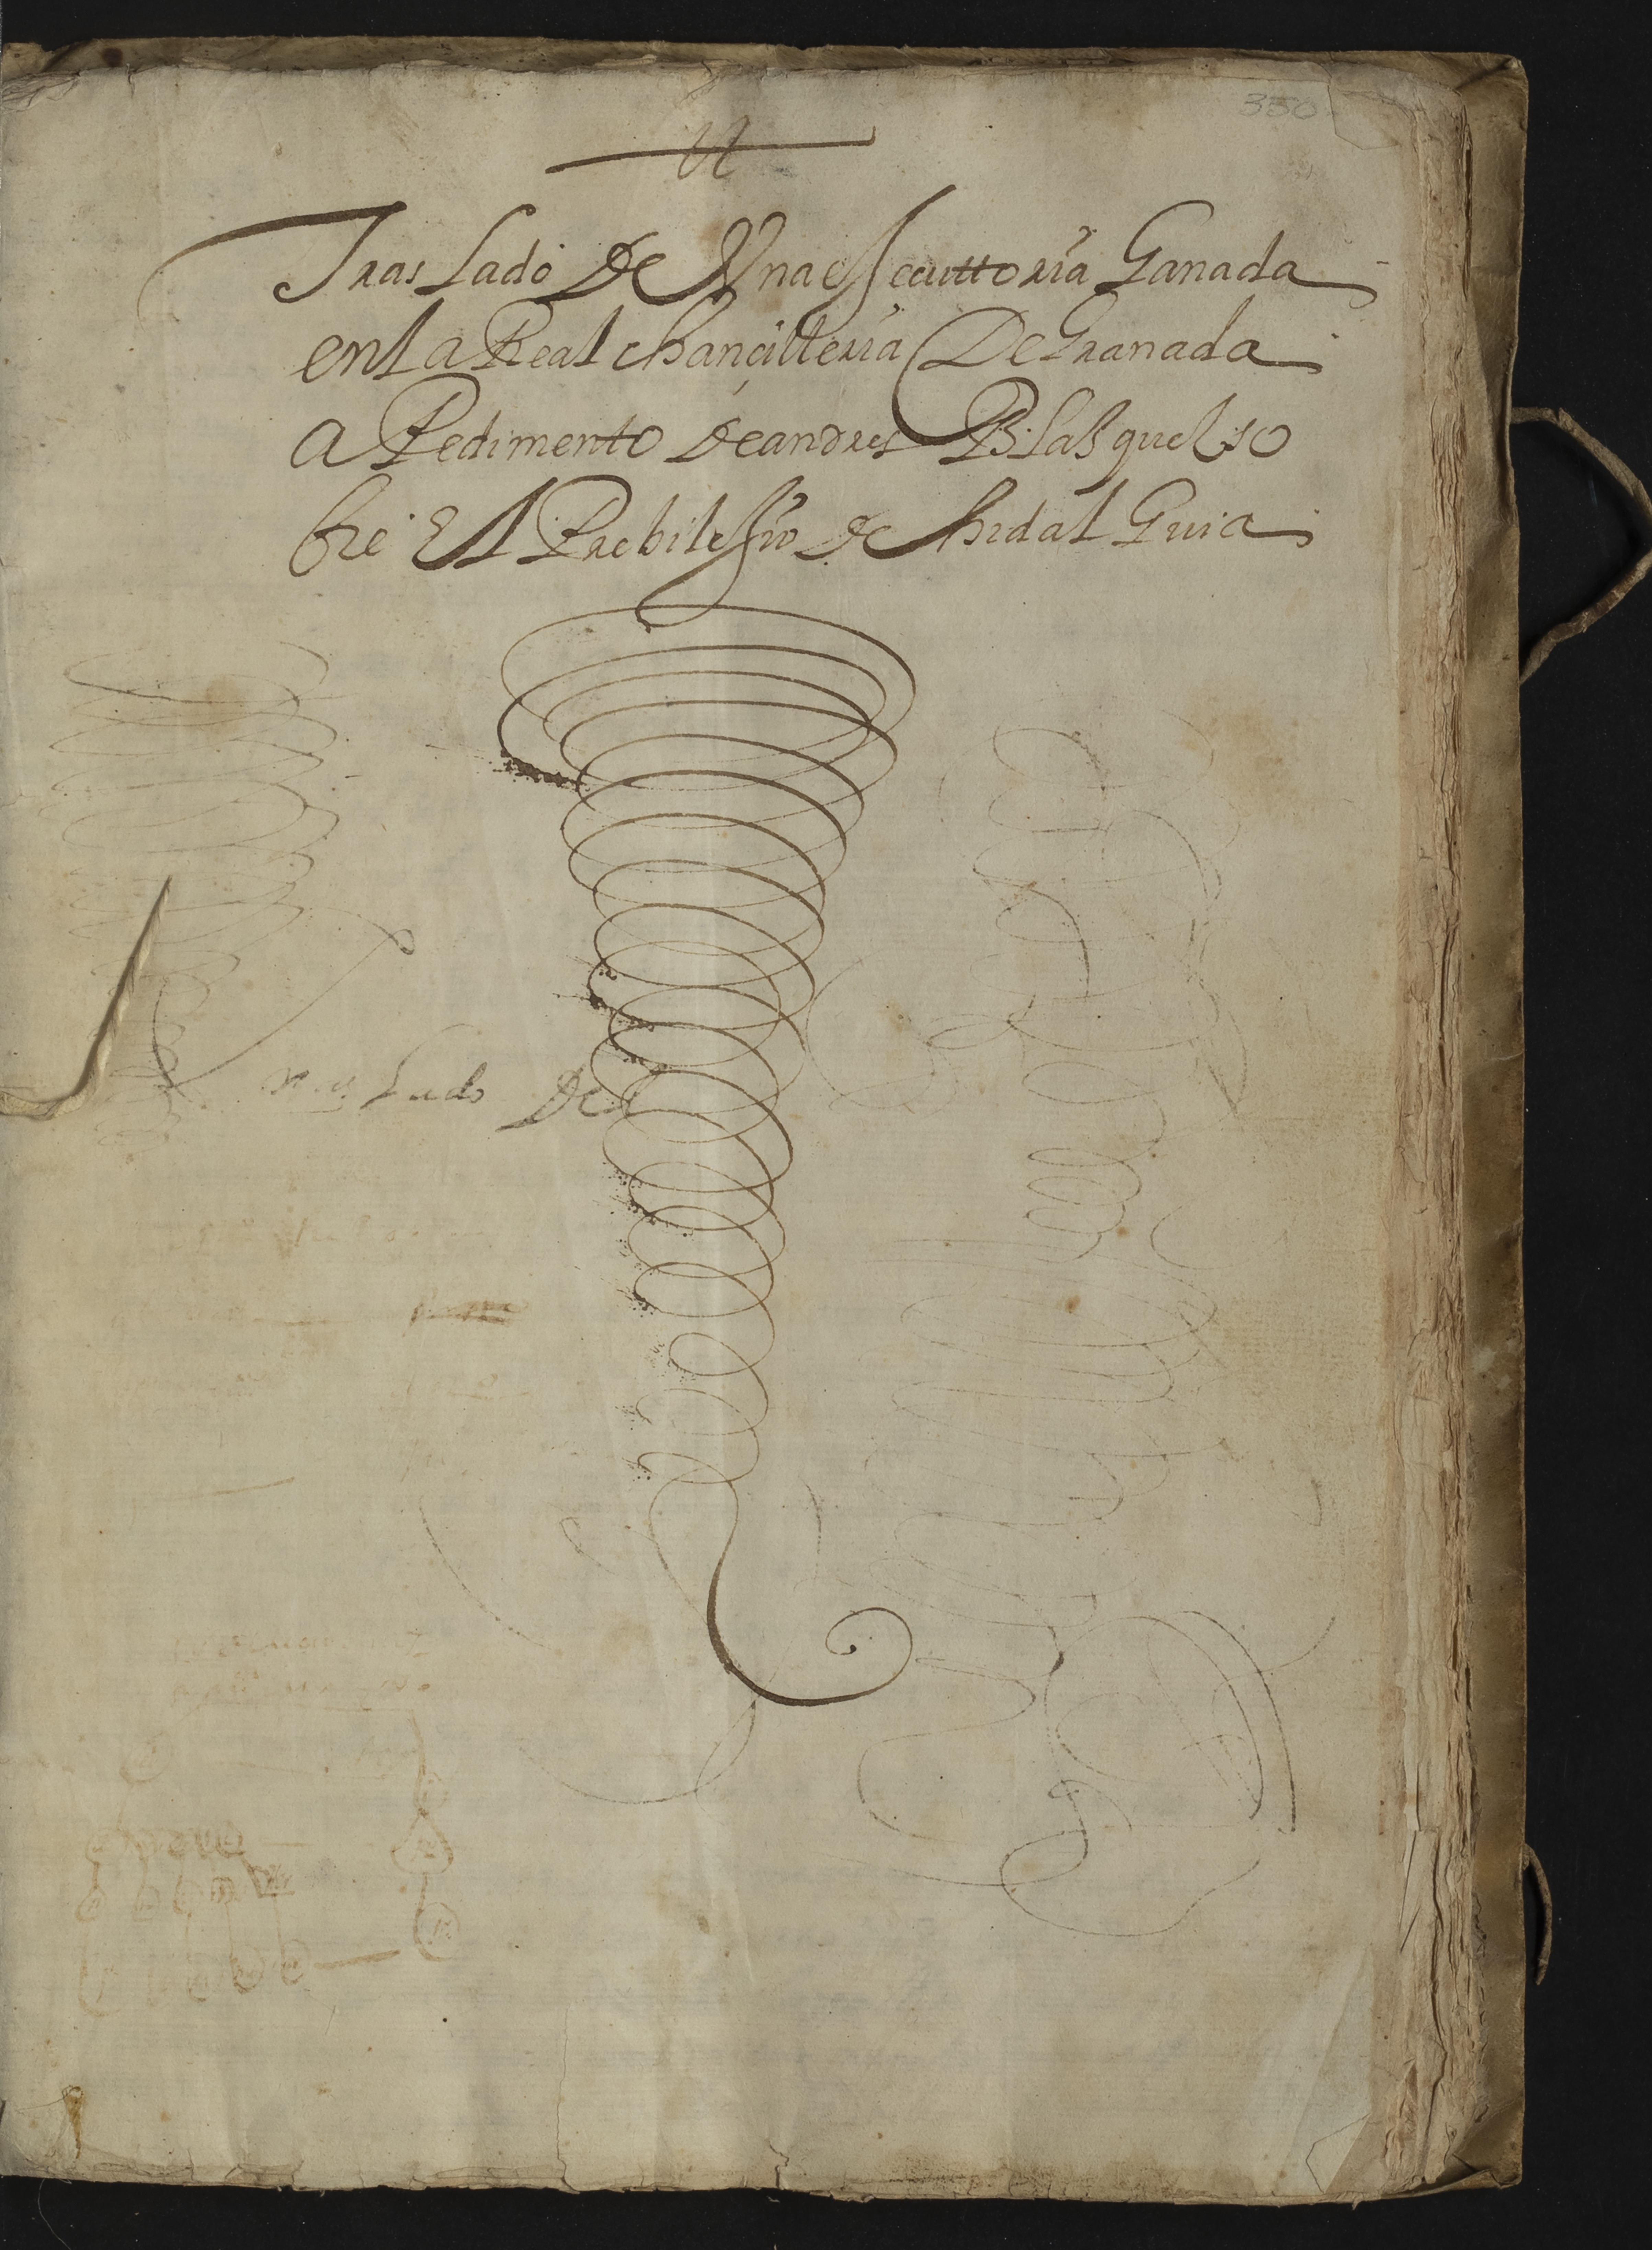 350
Traslado De Una essecuttoria Ganada
en la Real chançilleria De Granada
a Pedimento de andres Blasques so
bre El Prebilessio de hidal Guia
ras lado Del